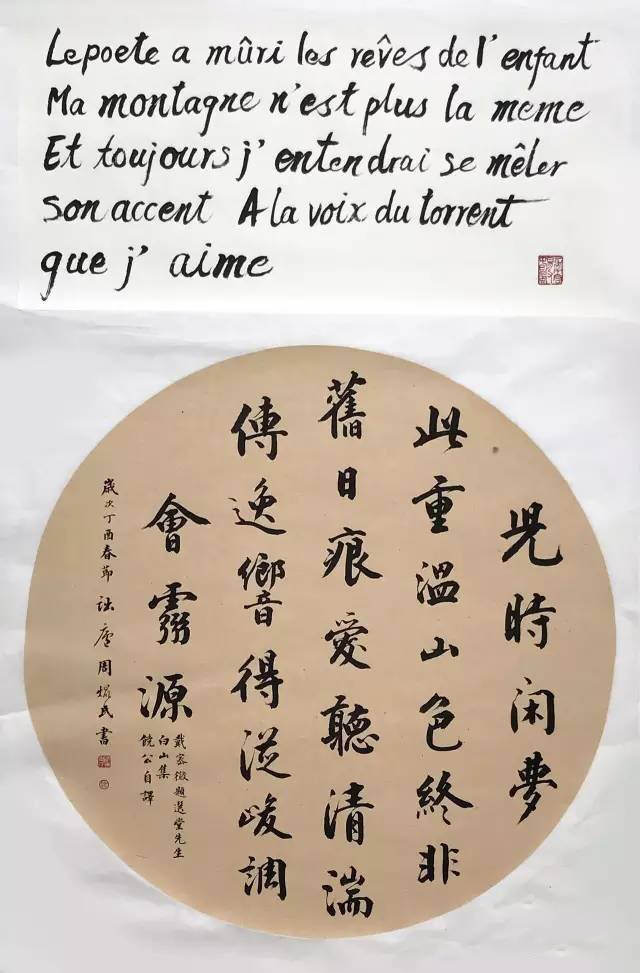 Le poete a mûri les rêves de l'enfant
Ma montagne n'est plus la meme
Et toujours j' entendrai se mêler
Son accent A la voix du torrent
que j' aime
兒時闲夢
此重溫山色終非
舊日痕愛聽清湍
傳逸響得從峻調
會靈源
戴密微題選堂先生
白山集
饒公自譯
歲次丁酉春節 廬周焜民書